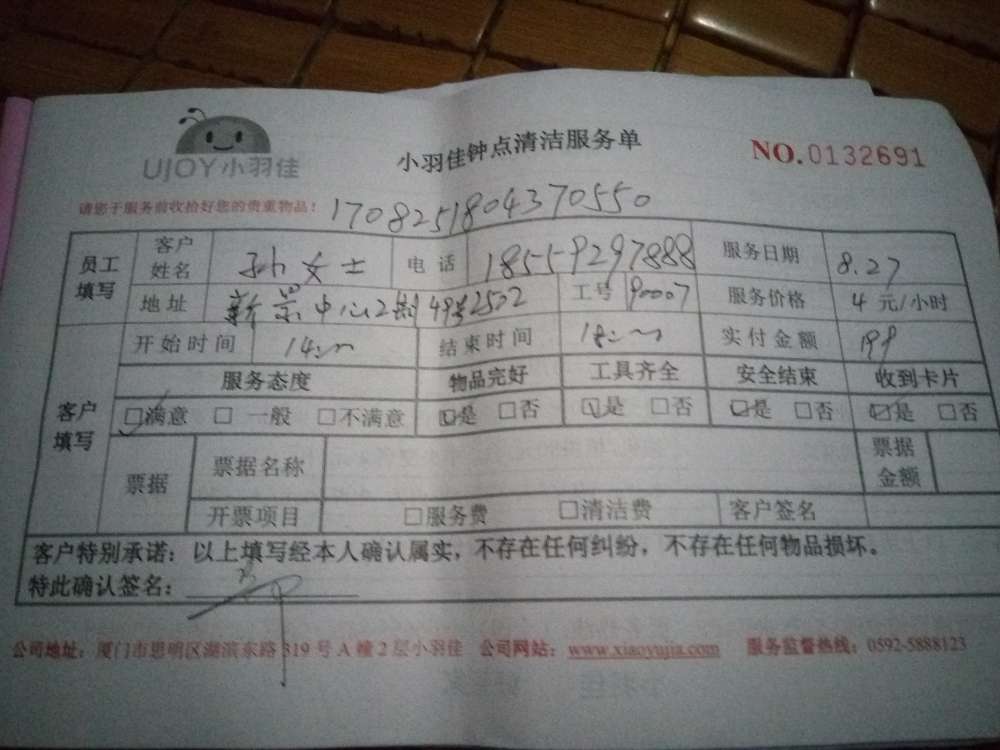 UJOY小羽佳
小羽佳钟点清洁服务单
NO.0132691
请您于服务前收拾好您的贵重物品！
1708251804370550
员工填写 客户姓名 孙女士 电话 18559297888 服务日期 8.27
地址 新景中心2期49号2502 工号 90007 服务价格 4 元/小时
客户填写 开始时间 14: 结束时间 18: 实付金额 198
服务态度 物品完好 工具齐全 安全结束 收到卡片
☑满意 □一般 □不满意 ☑是 □否 ☑是 □否 ☑是 □否 ☑是 □否
票据 票据名称 票据金额
开票项目 □服务费 □清洁费 客户签名
客户特别承诺：以上填写经本人确认属实，不存在任何纠纷，不存在任何物品损坏。
特此确认签名：
公司地址：厦门市思明区湖滨东路319号A幢2层小羽佳 公司网站：www.xiaoyujia.com 服务监督热线：0592-5888123